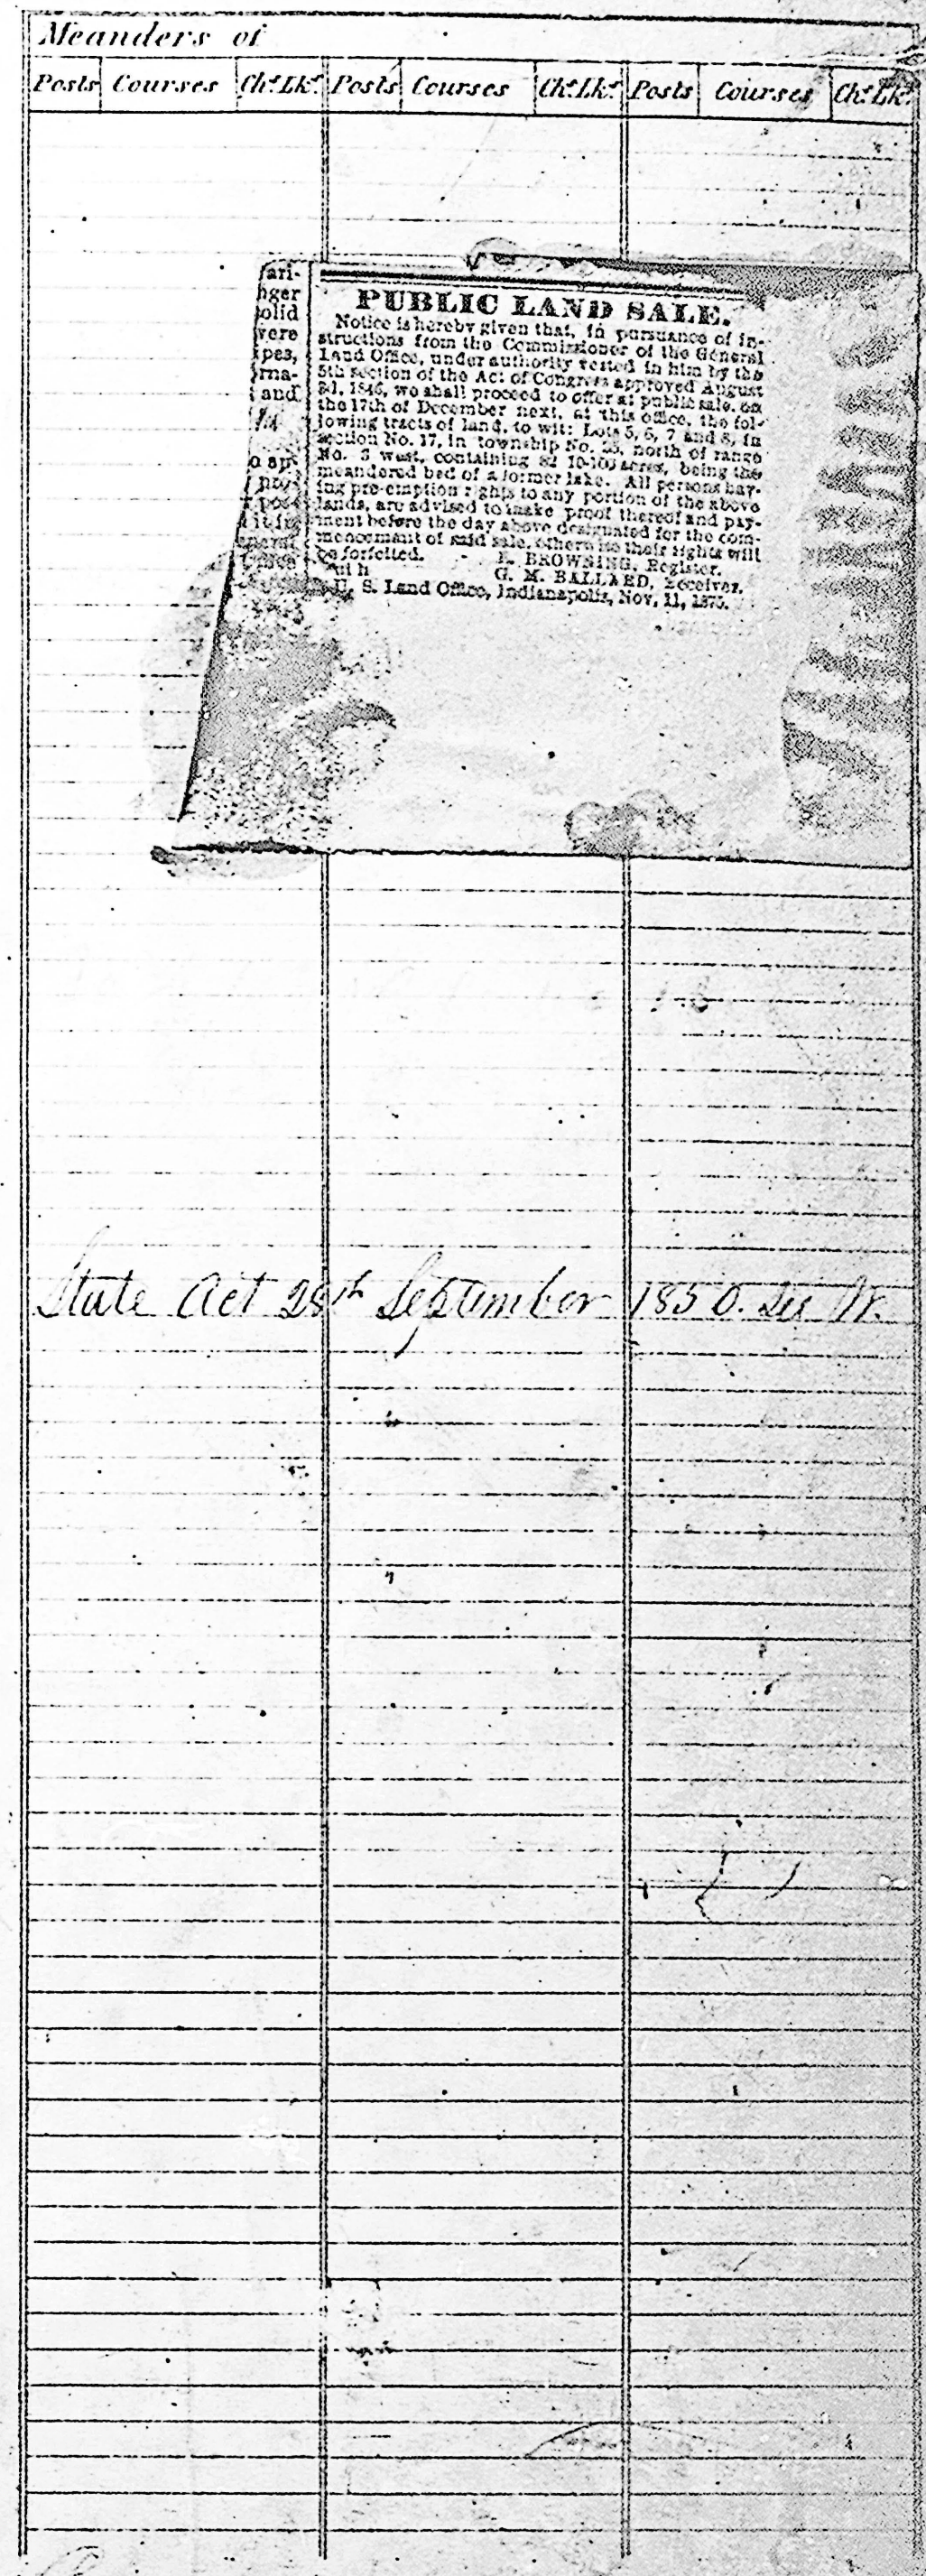 Meanders of
Posts Courses Chs. Lks. Posts Courses Chs. Lks. Posts Courses Chs. Lks.
ari-
nger
olid
vere
ipes,
rma-
and
PUBLIC LAND SALE.
Notice is hereby given that, in pursuance of in-
structions from the Commissioner of the General
Land Office, under authority vested in him by the
5th section of the Act of Congress approved August
3d, 1846, we shall proceed to offer at public sale, on
the 17th of December next, at this office, the fol-
lowing tracts of land, to wit: Lots 5, 6, 7 and 8, in
section No. 17, in township No. north of range
No. 3 west, containing 82 10-100 acres, being the
meandered bed of a former lake. All persons hav-
ing pre-emption rights to any portion of the above
lands, are advised to make proof thereof and pay-
ment before the day above designated for the com-
mencement of said sale, otherwise their rights will
be forfeited.
BROWNING, Register.
G. M. BALLARD, Receiver.
U. S. Land Office, Indianapolis, Nov. 11, 1875.
State Act 28th September 1850.